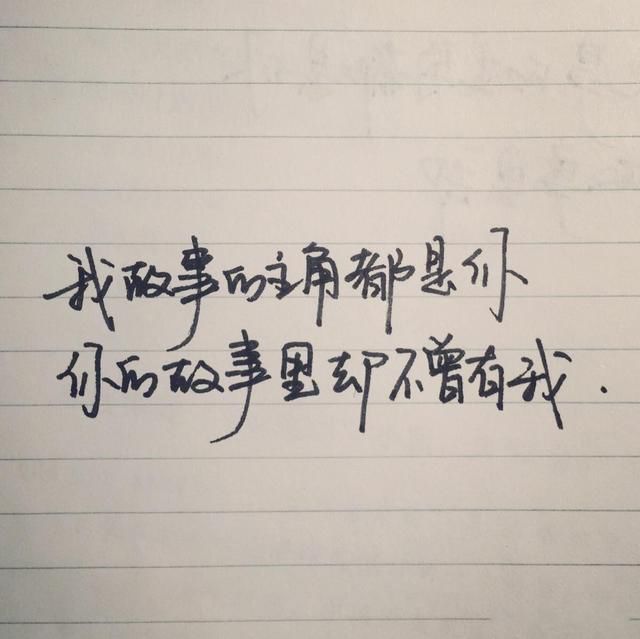 我故事的主角都是你
你的故事里却不曾有我.